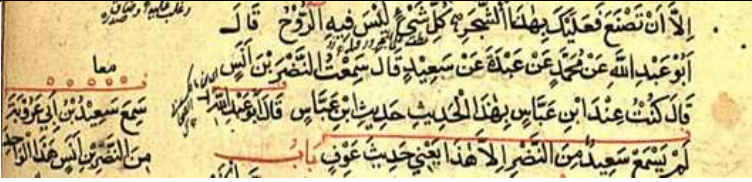 إِلَّا أَنْ تَصْنَعَ فَعَلَيْكَ بِهٰذَا الشَّجَرِ كُلِّ شَيْءٍ لَيْسَ فِيهِ الرُّوحُ قَالَ
أَبُو عَبْدِ اللهِ عَنْ مُحَمَّدٍ عَنْ عَبْدَةَ عَنْ سَعِيدٍ قَالَ سَمِعْتُ النَّضْرَ بْنَ أَنَسٍ
قَالَ كُنْتُ عِنْدَ ابْنِ عَبَّاسٍ بِهٰذَا الْحَدِيثِ حَدِيثِ ابْنِ عَبَّاسٍ قَالَ أَبُو عَبْدِ اللهِ
لَمْ يَسْمَعْ سَعِيدٌ مِنَ النَّضْرِ إِلَّا هٰذَا يَعْنِي حَدِيثَ عَوْفٍ بَابُ
معا
سَمِعَ سَعِيدُ بْنُ أَبِي عَرُوبَةَ
مِنَ النَّضْرِ بْنِ أَنَسٍ هٰذَا الْوَاحِدَ